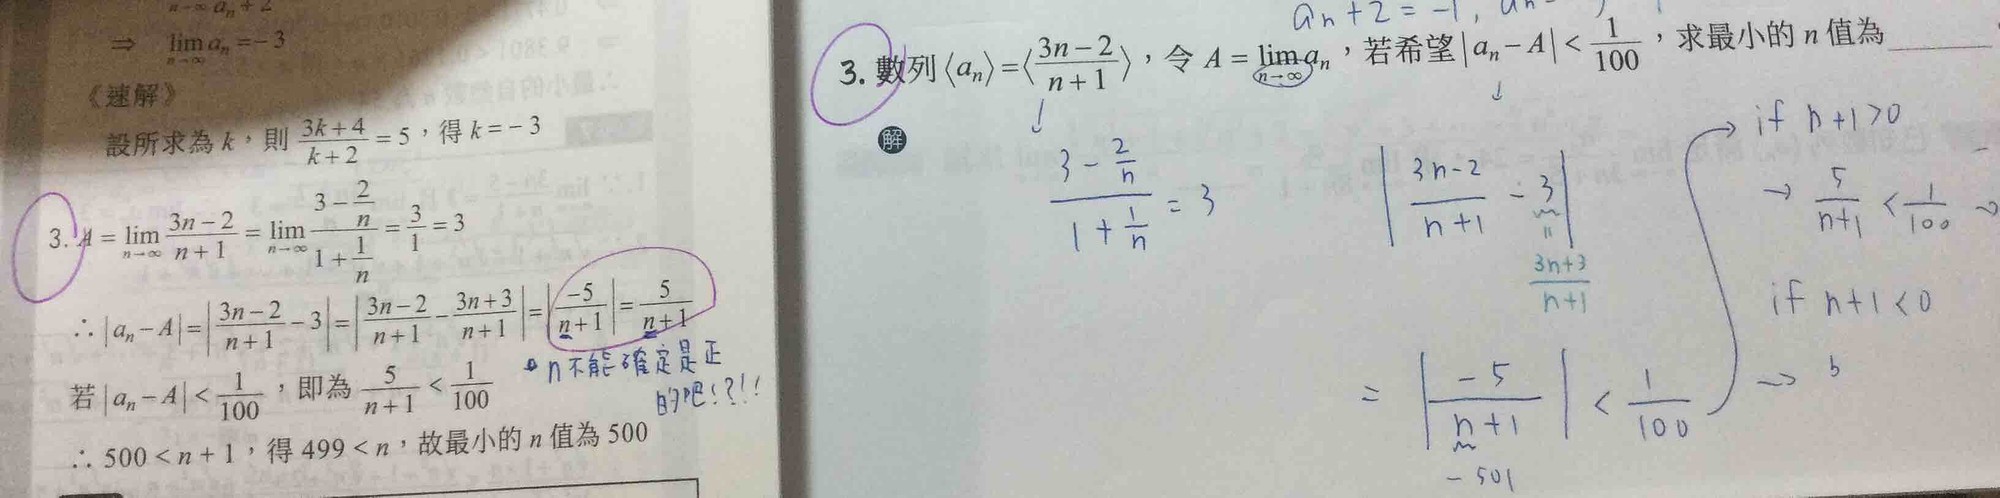 ⇒ lim a_n = -3
n→∞
《速解》
設所求為 k，則 (3k+4)/(k+2) = 5，得 k = -3
3. A = lim_{n→∞} (3n-2)/(n+1) = lim_{n→∞} (3 - 2/n)/(1 + 1/n) = 3/1 = 3
∴ |a_n - A| = |(3n-2)/(n+1) - 3| = |(3n-2)/(n+1) - (3n+3)/(n+1)| = |-5/(n+1)| = 5/(n+1)
n 不能確定是正
的吧!?!!
若 |a_n - A| < 1/100，即為 5/(n+1) < 1/100
∴ 500 < n+1，得 499 < n，故最小的 n 值為 500
a_n + 2 = -1,
3. 數列 ⟨a_n⟩ = ⟨(3n-2)/(n+1)⟩，令 A = lim_{n→∞} a_n，若希望 |a_n - A| < 1/100，求最小的 n 值為______
解
(3 - 2/n)/(1 + 1/n) = 3
|(3n-2)/(n+1) - 3|
=
(3n+3)/(n+1)
= |-5/(n+1)| < 1/100
-501
if n+1 > 0
→ 5/(n+1) < 1/100 →
if n+1 < 0
→